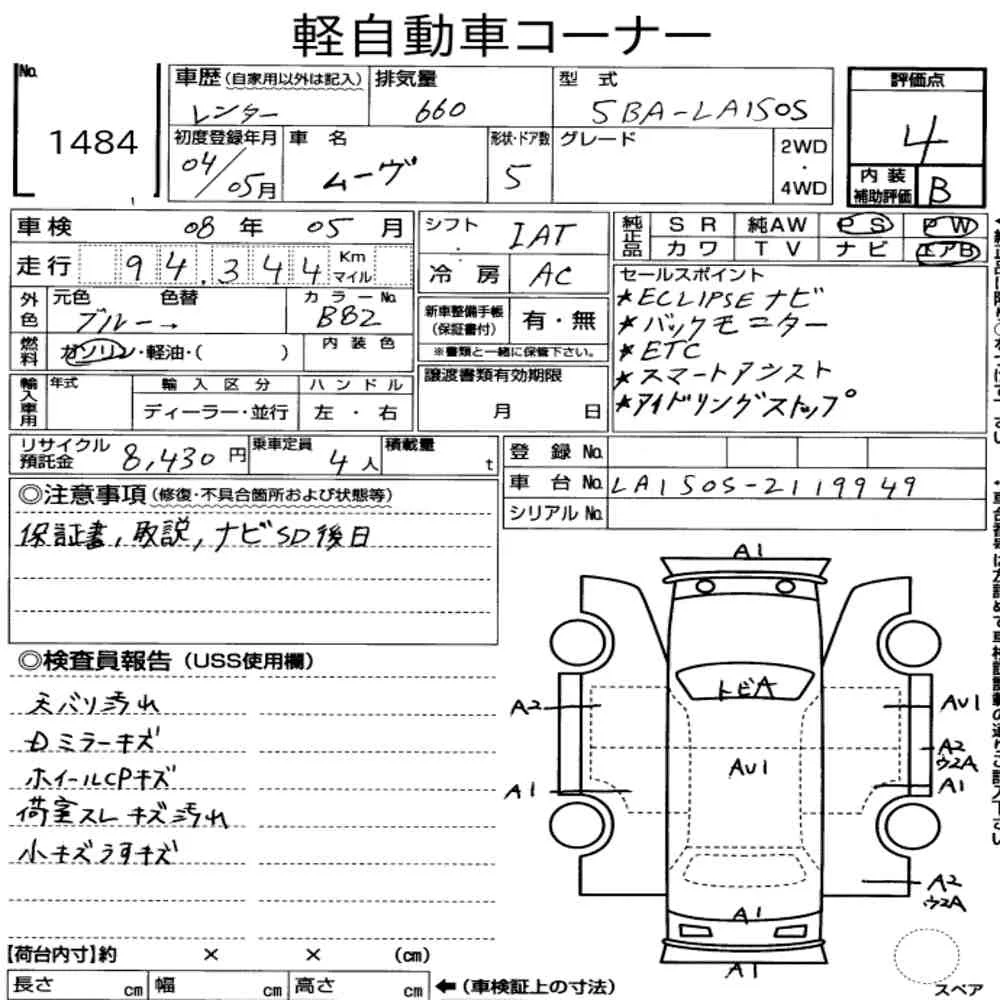 軽自動車コーナー
No.
1484
車歴（自家用以外は記入）
レンター
排気量
660
型 式
5BA-LA150S
評価点
4
内装補助評価
B
初度登録年月
04/05月
車 名
ムーヴ
形状・ドア数
5
グレード
2WD
・
4WD
車検
08 年 05 月
走行
94.344
Km
マイル
外色
元色
色替
ブルー→
カラーNo.
B82
燃料
ガソリン・軽油・（ ）
内装色
輸入車用
年式
輸入区分
ディーラー・並行
ハンドル
左・右
シフト
IAT
冷房
AC
新車整備手帳（保証書付）
有・無
※書類と一緒に保管下さい。
譲渡書類有効期限
月 日
純正品
SR 純AW PS PW
カワ TV ナビ エアB
セールスポイント
★ECLIPSEナビ
★バックモニター
★ETC
★スマートアシスト
★アイドリングストップ
リサイクル預託金
8,430円
乗車定員
4人
積載量
t
登録No.
車台No.
LA150S-2119949
シリアルNo.
◎注意事項（修復・不具合箇所および状態等）
保証書，取説，ナビSD後日
◎検査員報告（USS使用欄）
天バリ汚れ
Dミラーキズ
ホイールCPキズ
荷室スレキズ汚れ
小キズうすキズ
A1
トビA
A2
AU1
AU1
A2
ウ2A
A1
A1
A2
ウ2A
A1
A1
スペア
【荷台内寸】約 × × （cm）
長さ cm 幅 cm 高さ cm ←（車検証上の寸法）